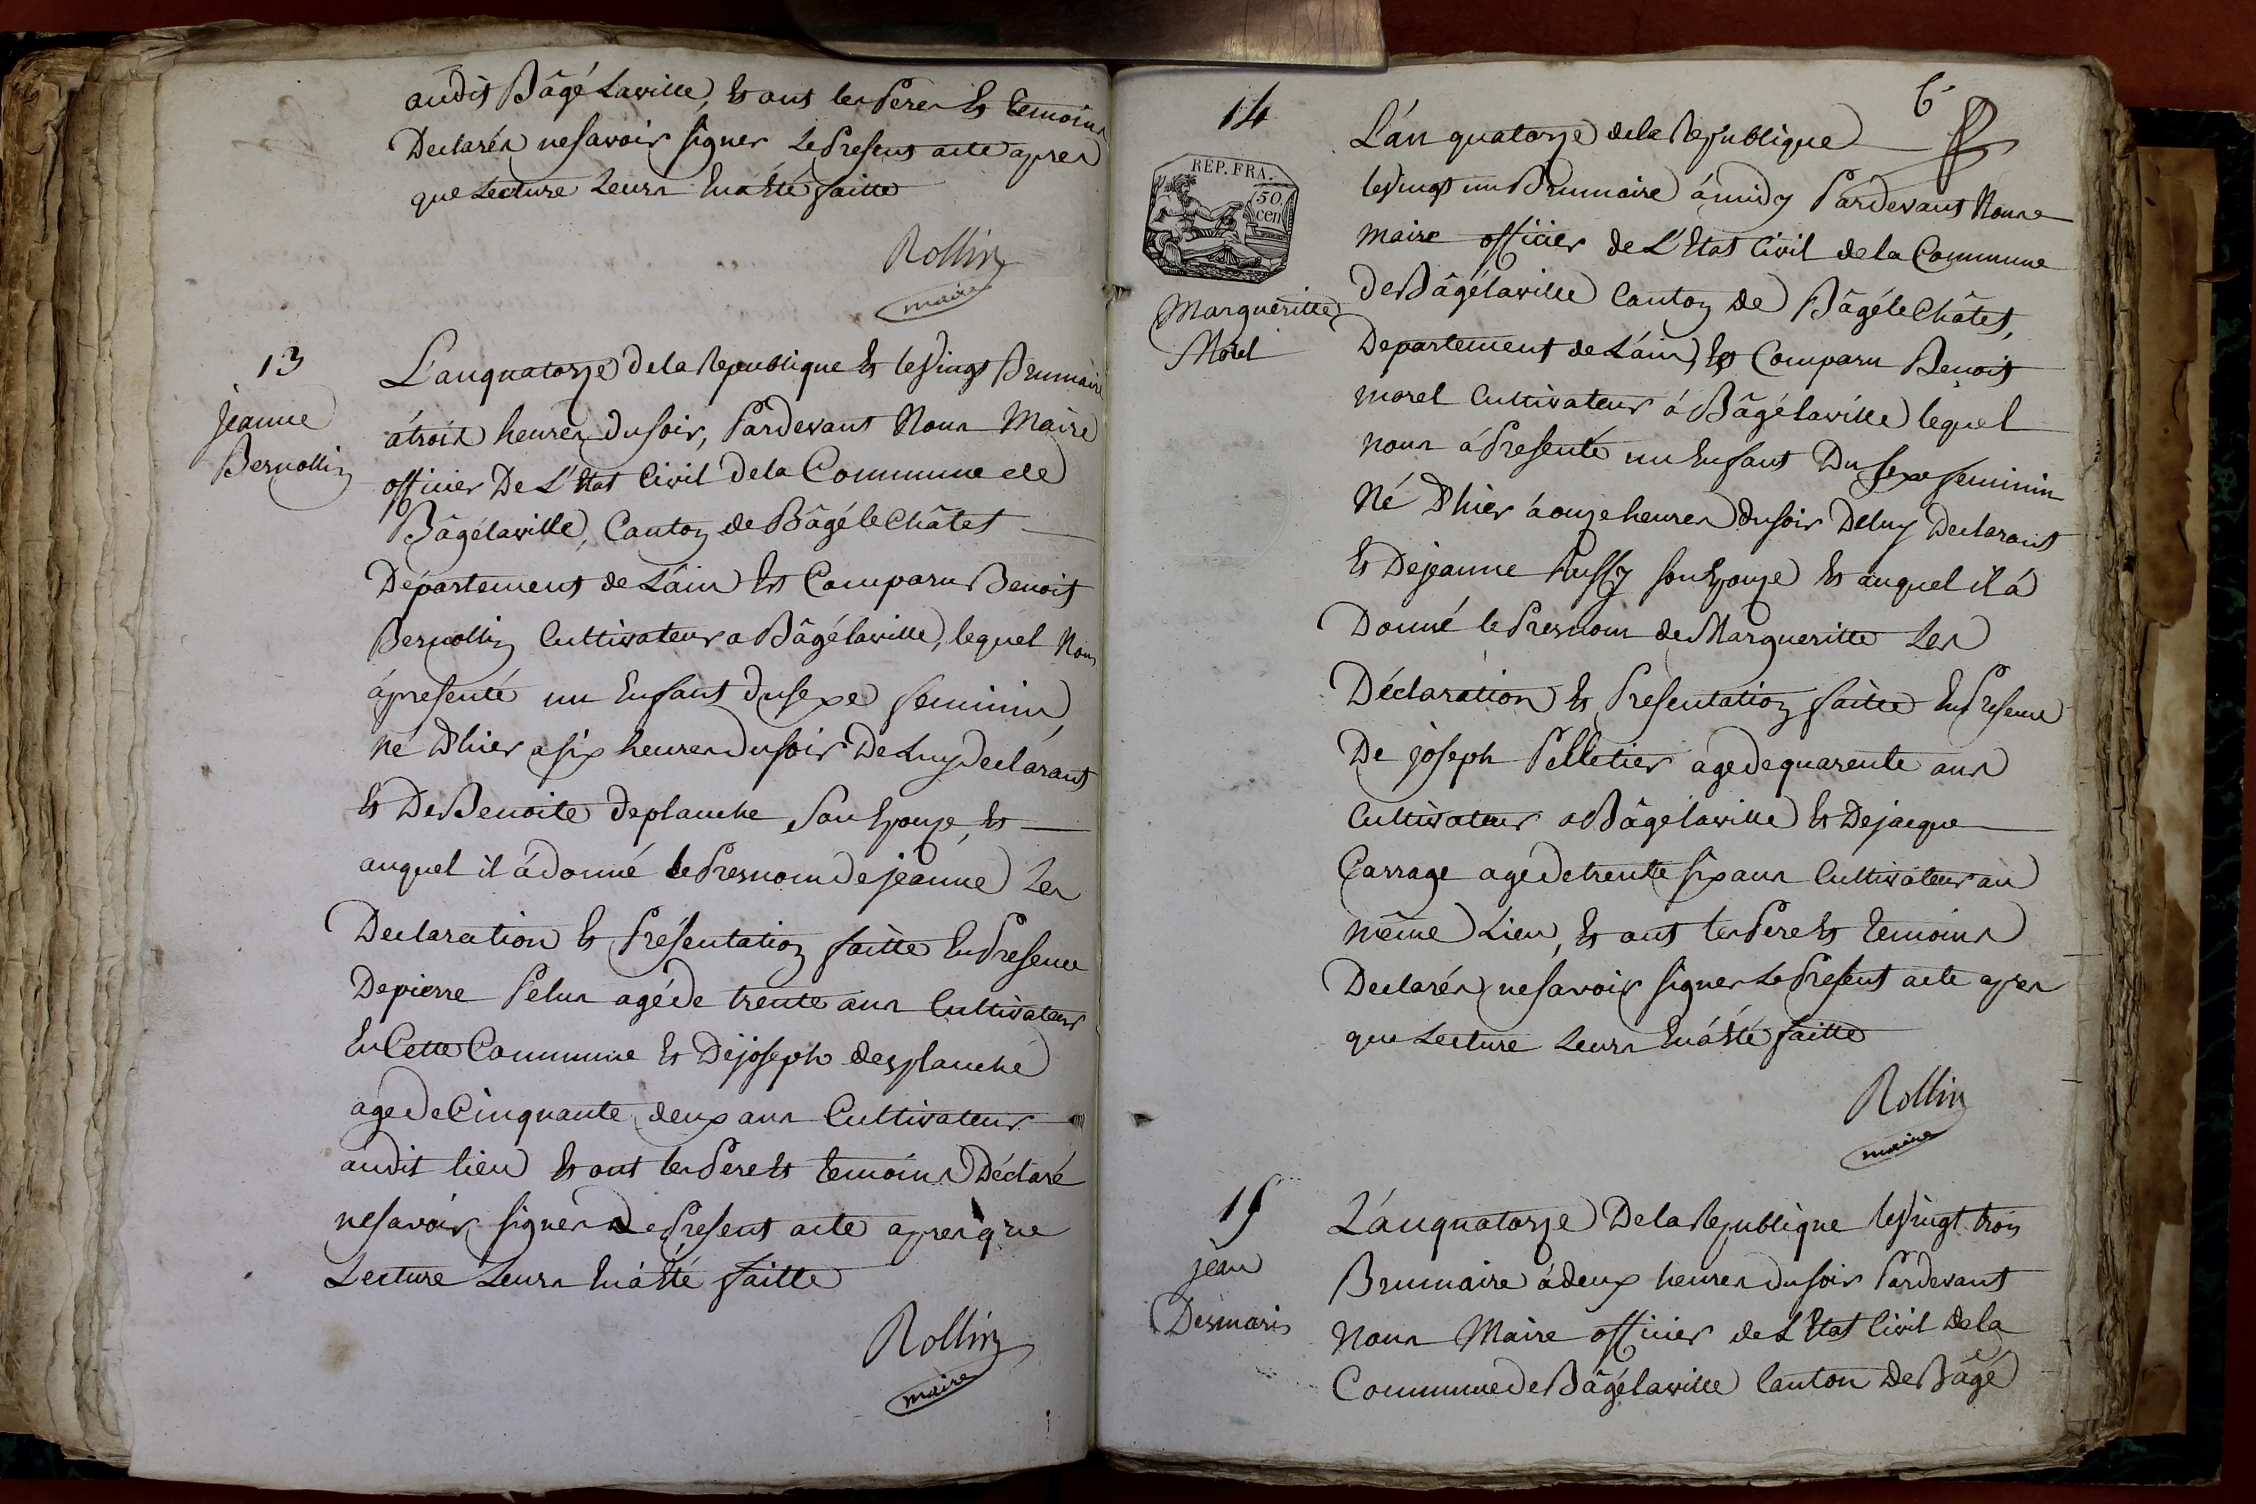 audit Bâgé Laville, Et ont les Peres Et temoins
Declarés ne savoir signer Le Present acte apres
que Lecture Leurs En a Eté faitte
Rollin
maire
13
jeanne
Bernollin
L'an quatorze de la Republique Et le Vingt Brumaire
á trois heures du soir, Pardevant Nous Maire
officier De L'Etat Civil de la Commune de
Bâgélaville, Canton de Bâgé le Châtel
Département de L'ain Est Comparu Benoit
Bernollin Cultivateur a Bâgélaville, lequel Nous
á presenté un Enfant du sexe feminin
né D'hier a six heures du soir De Luy Declarant
Et De Benoite deplanche Son Epouze, Et
auquel il á donné le Presnom de jeanne Les
Declaration Et Présentation faitte En Presence
De pierre Pelus agé de trente ans Cultivateur
En Cette Commune Et De joseph desplanche
age de Cinquante deux ans Cultivateur
audit lieu Et ont les Pere Et temoins Déclaré
ne savoir signer Le Present acte apres que
Lecture Leurs En á Eté faitte
Rollin
maire
6
14
REP. FRA.
50
cen
Margueritte
Morel
L'an quatorze de la Republique
le Vingt un Brumaire á midy Pardevant Nous
Maire officier de L'Etat Civil de la Commune
de Bâgélaville Canton de Bâgé le Châtel,
Departement de L'ain, Est Comparu Benoit
morel Cultivateur á Bâgélaville lequel
nous á Presenté un Enfant Du sexe feminin
Né D'hier á onze heures du soir De luy Declarant
Et De jeanne son Epouze Et auquel il á
Donné le Presnom de Margueritte Les
Déclaration Et Presentation faitte En Presence
De joseph Pelletier age de quarente ans
Cultivateur a Bâgélaville Et De jacque
Carrage age de trente six ans Cultivateur au
même Lieu, Et ont les Pere Et temoins
Declarés ne savoir signer Le Present acte apres
que Lecture Leurs En á Eté faitte
Rollin
maire
15
jean
Desmaris
L'an quatorze De la Republique le Vingt trois
Brumaire á deux heures du soir Pardevant
Nous Maire officier de L'Etat Civil de la
Commune de Bâgélaville Canton De Bâgé